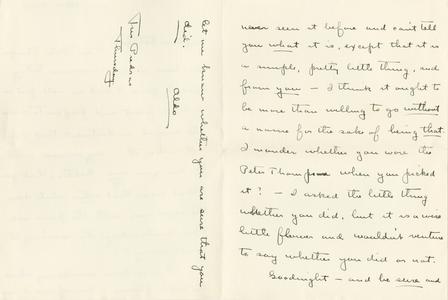 never seen it before and can't tell
you what it is, except that it is
a simple, pretty little thing, and
from you — I think it ought to
be more than willing to go without
a name for the sake of being that.
I wonder whether you wore the
Peter Thompson when you picked
it? — I asked the little thing
whether you did, but it is a wise
little flower and wouldn't venture
to say whether you did or not.
Goodnight — and be sure and
let me know whether you are sure that you
did.
Aldo
Tres Piedras
Thursday